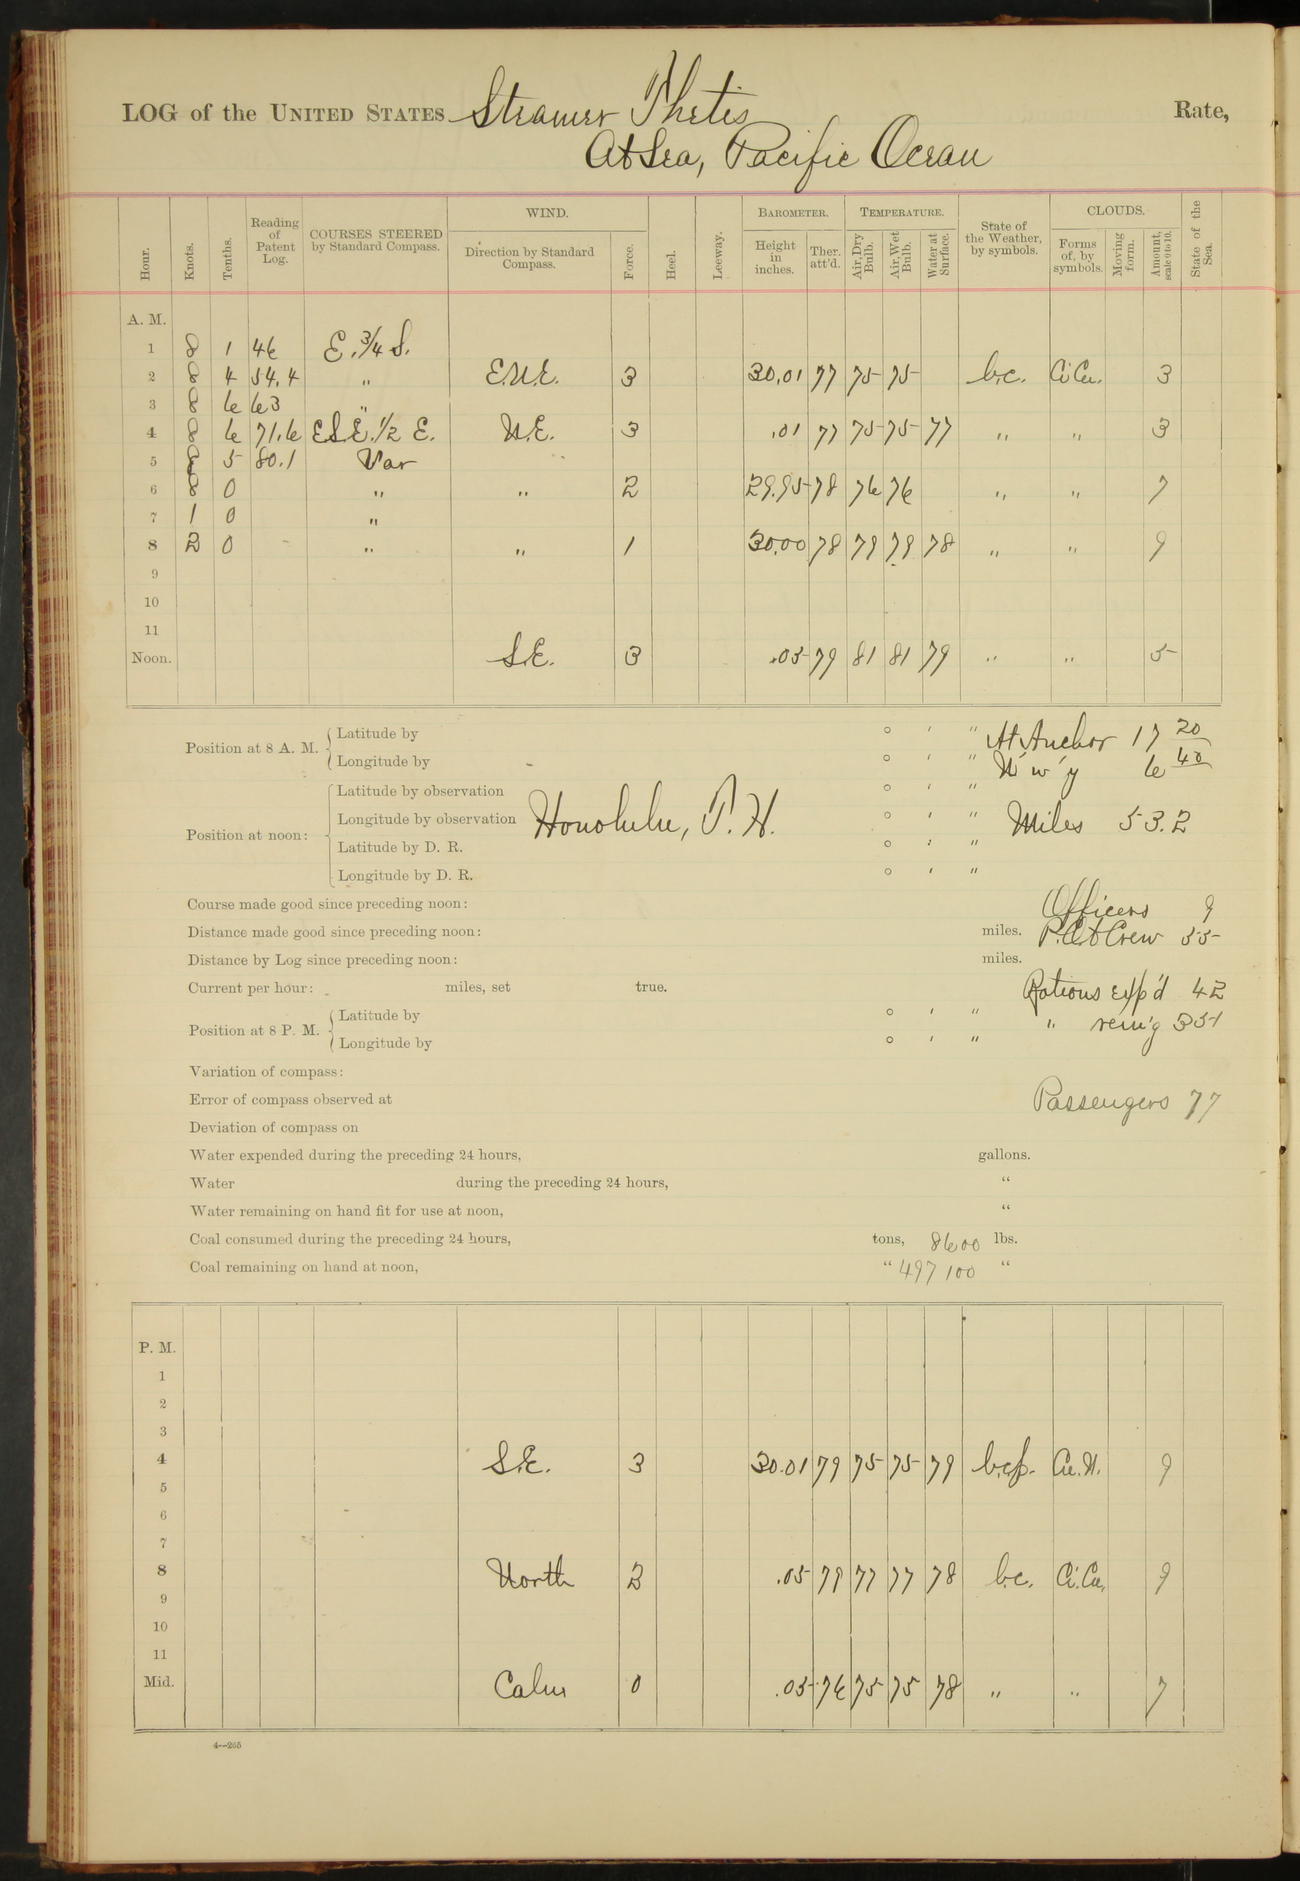 LOG of the UNITED STATES Steamer Thetis Rate,
At Sea, Pacific Ocean
Hour. Knots. Tenths. Reading of Patent Log. COURSES STEERED by Standard Compass. WIND. Direction by Standard Compass. Force. Heel. Leeway. BAROMETER. Height in inches. Ther. att'd. TEMPERATURE. Air, Dry Bulb. Air, Wet Bulb. Water at Surface. State of the Weather, by symbols. CLOUDS. Forms of, by symbols. Moving form. Amount, scale 0 to 10. State of the Sea.
A. M.
1 8 1 46 E. 3/4 S.
2 8 4 54.4 " E.N.E. 3 30.01 77 75 75 b.c. Ci Cu. 3
3 8 6 63 "
4 8 6 71.6 ESE. 1/2 E. N.E. 3 .01 77 75 75 77 " " 3
5 8 5 80.1 Var
6 8 0 " " 2 29.95 78 76 76 " " 7
7 1 0 "
8 2 0 " " 1 30.00 78 79 79 78 " " 9
9
10
11
Noon. S.E. 3 .05 79 81 81 79 " " 5
Position at 8 A. M. Latitude by ° ′ ″ At Anchor 17 20
Longitude by ° ′ ″ U'w'y 6 40
Position at noon: Latitude by observation ° ′ ″
Longitude by observation Honolulu, T. H. ° ′ ″ Miles 53.2
Latitude by D. R. ° ′ ″
Longitude by D. R. ° ′ ″
Course made good since preceding noon: Officers 9
Distance made good since preceding noon: miles. P.O. & Crew 55
Distance by Log since preceding noon: miles.
Current per hour: miles, set true. Rations exp'd 42
Position at 8 P. M. Latitude by ° ′ ″ " rem'g 351
Longitude by ° ′ ″
Variation of compass:
Error of compass observed at Passengers 77
Deviation of compass on
Water expended during the preceding 24 hours, gallons.
Water during the preceding 24 hours, "
Water remaining on hand fit for use at noon, "
Coal consumed during the preceding 24 hours, tons, 8600 lbs.
Coal remaining on hand at noon, " 497100 "
P. M.
1
2
3
4 S.E. 3 30.01 79 75 75 79 b.c.p. Cu. N. 9
5
6
7
8 North 2 .05 79 77 77 78 b.c. Ci. Cu. 9
9
10
11
Mid. Calm 0 .05 76 75 75 78 " " 7
4—265